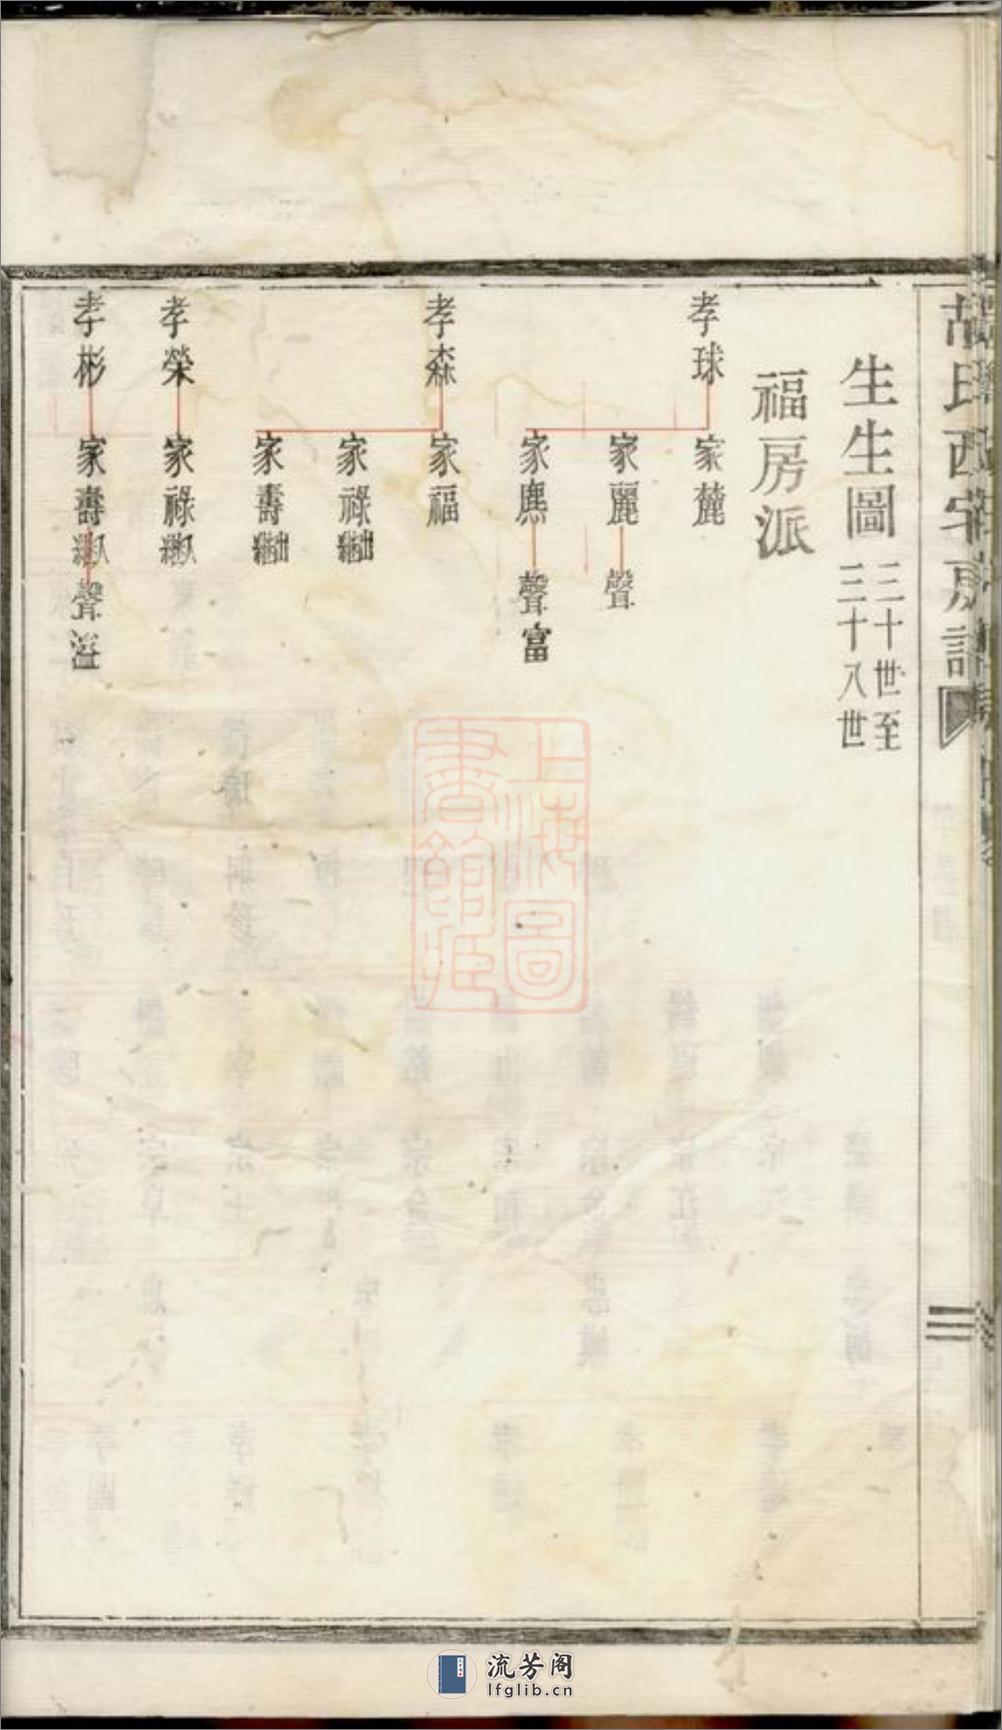 胡氏西宅房譜
生生圖 三十世至
三十八世
福房派
孝球
家麓
家麗
聲
家廌
聲富
孝森
家福
家祿繼出
家壽繼出
孝榮
家祿繼入
孝彬
家壽繼入
聲溢
上海圖
書館藏
流芳阁
lfglib.cn